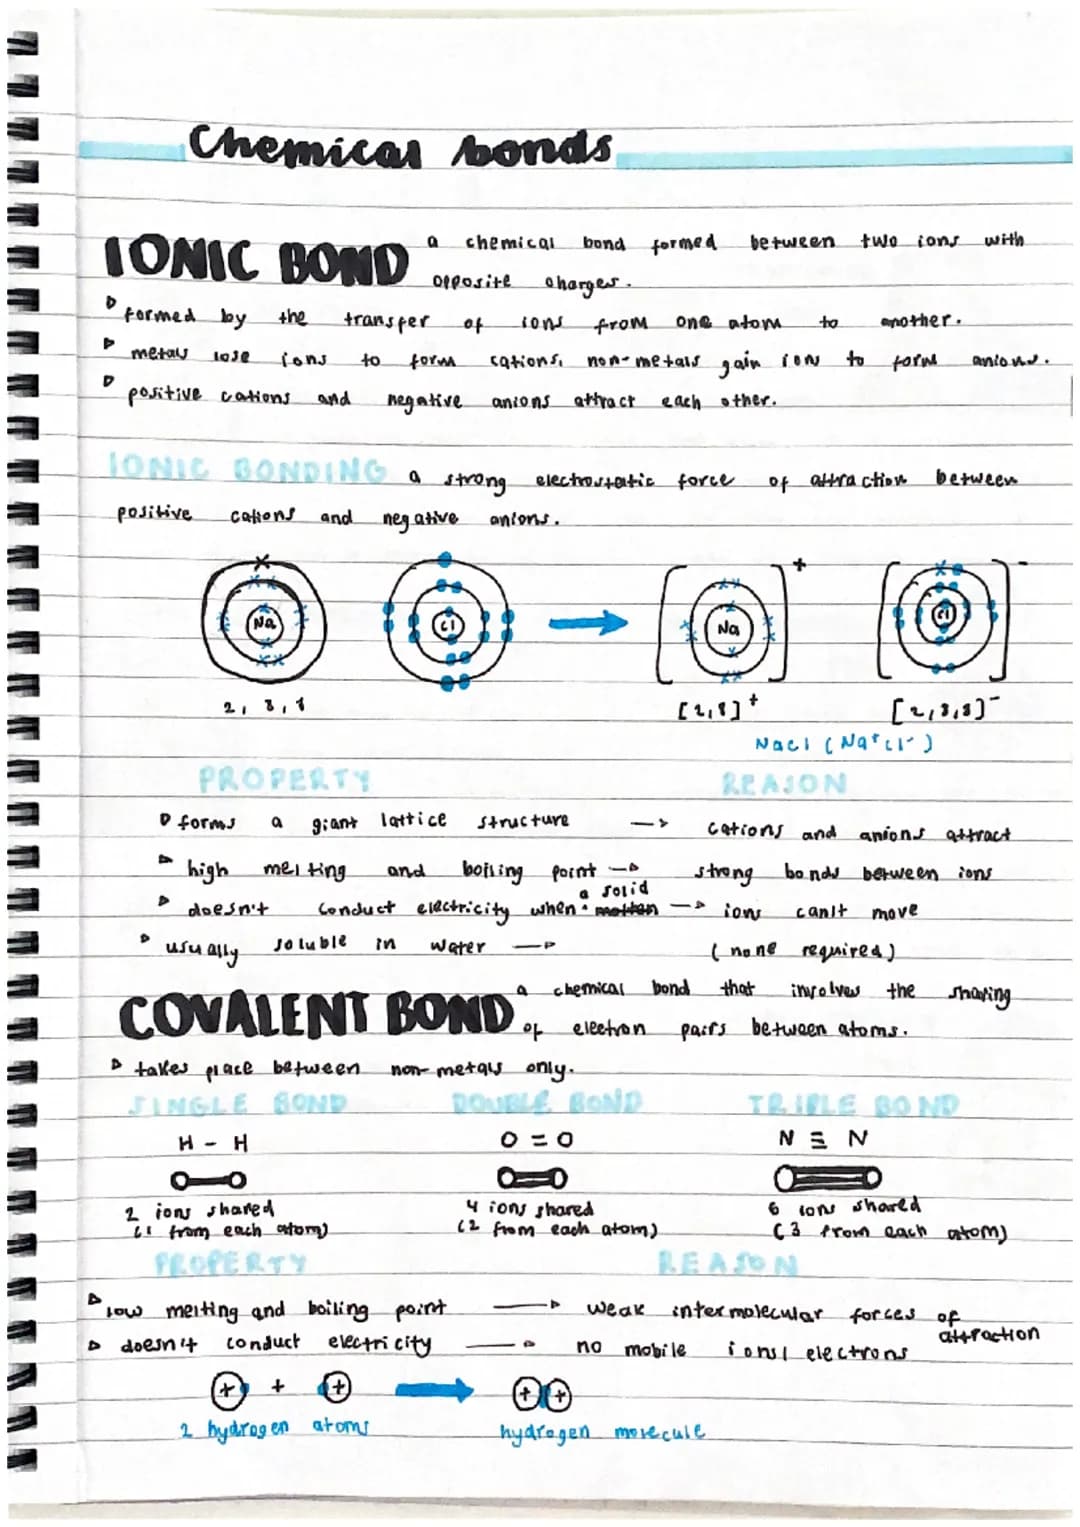 Chemical bonds
IONIC BOND a chemical bond formed between two ions with
opposite charges.
formed by the transfer of ions from one atom to another.
metals lose ions to form cations, non-metals gain ion to form anions.
positive cations and negative anions attract each other.
IONIC BONDING a strong electrostatic force of attraction between
positive cations and negative anions.
Na Cl [Na]+ [Cl]-
2, 8, 1 [2,8]+ [2,8,8]-
NaCl (Na+Cl-)
PROPERTY REASON
forms a giant lattice structure → cations and anions attract
high melting and boiling point → strong bonds between ions
doesn't conduct electricity when a solid → ions can't move
usually soluble in water → (none required)
COVALENT BOND a chemical bond that involves the sharing
of electron pairs between atoms.
takes place between non-metals only.
SINGLE BOND DOUBLE BOND TRIPLE BOND
H - H O = O N ≡ N
2 ions shared 4 ions shared 6 ions shared
(1 from each atom) (2 from each atom) (3 from each atom)
PROPERTY REASON
low melting and boiling point → weak intermolecular forces of
attraction
doesn't conduct electricity → no mobile ions/ electrons
+ + + → + +
2 hydrogen atoms hydrogen molecule